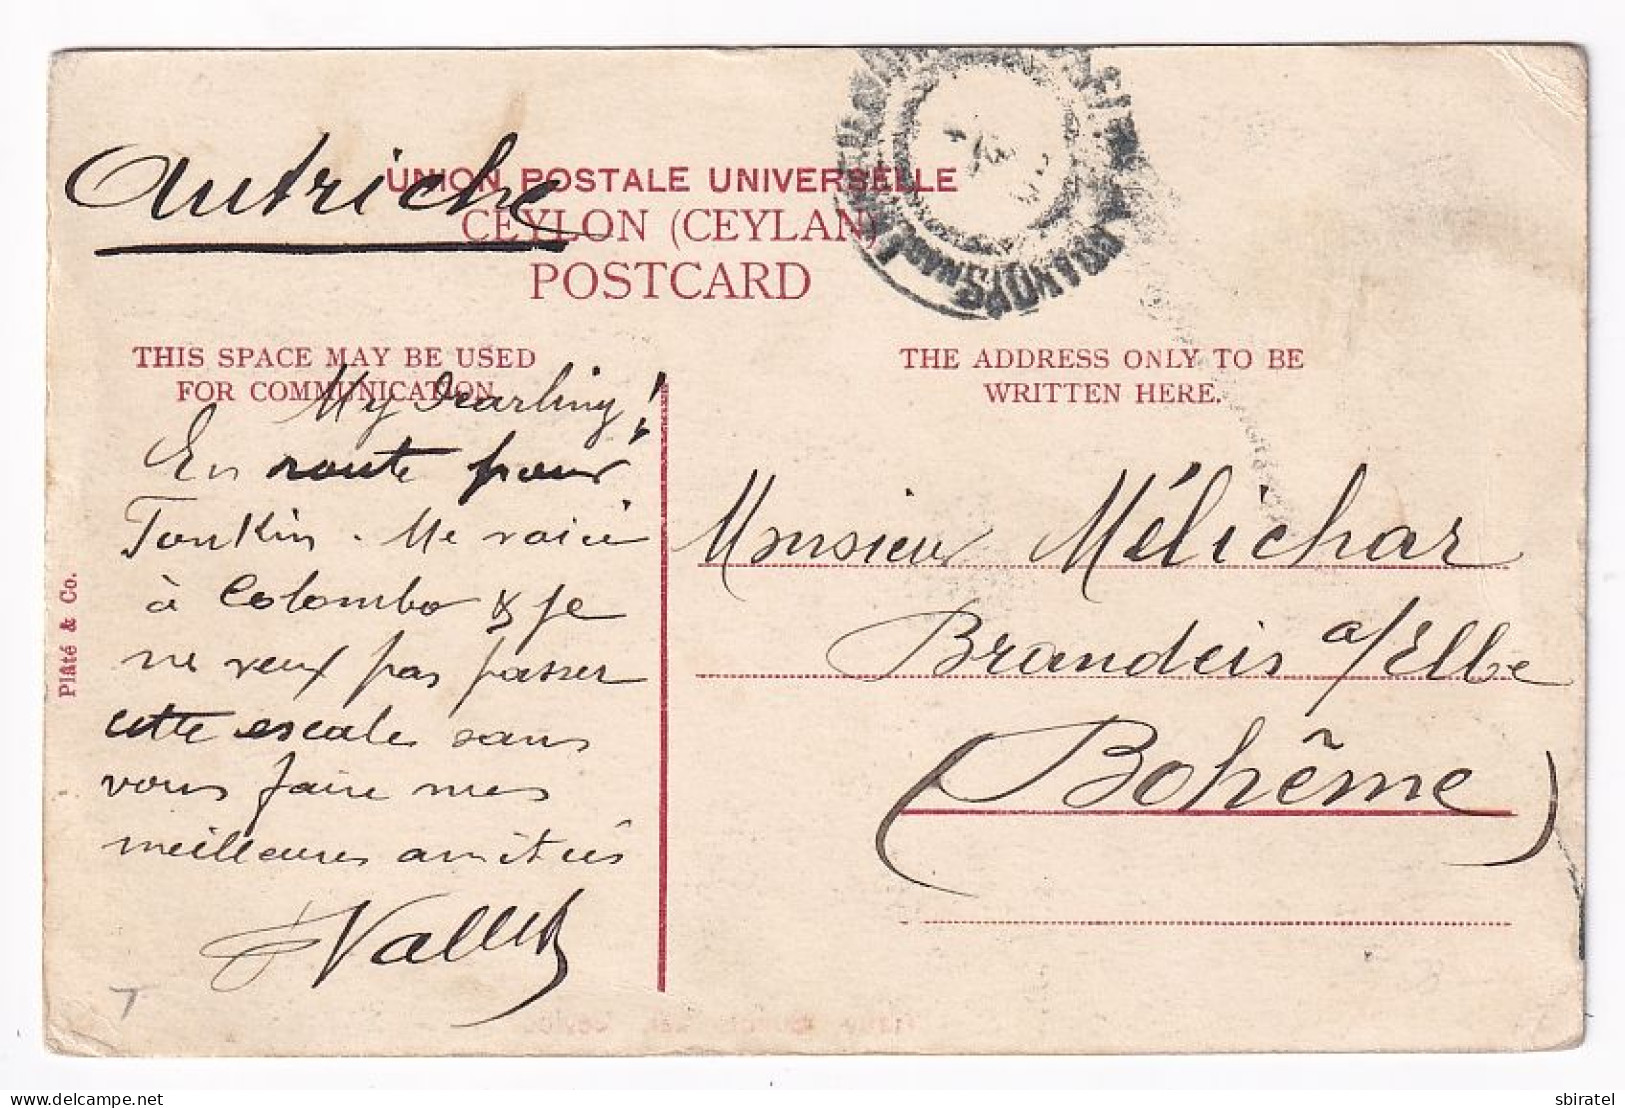 Autriche
UNION POSTALE UNIVERSELLE
CEYLON (CEYLAN)
POSTCARD
THIS SPACE MAY BE USED
FOR COMMUNICATION.
THE ADDRESS ONLY TO BE
WRITTEN HERE.
My Dearling!
En route pour
Tonkin. Me voici
à Colombo & je
ne veux pas passer
cette escale sans
vous faire mes
meilleures amitiés
Vallet
Monsieur Mélichar
Brandeis a/Elbe
(Bohême)
Plâté & Co.
T
sbiratel